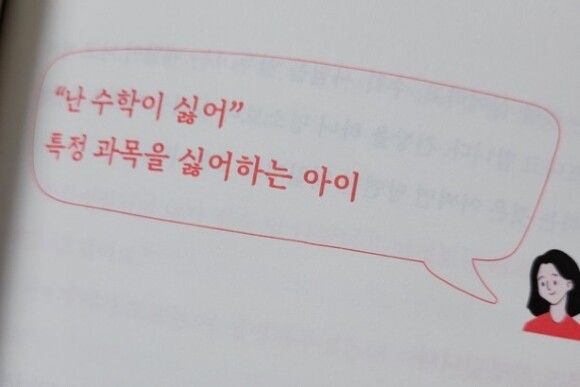 “난 수학이 싫어”
특정 과목을 싫어하는 아이